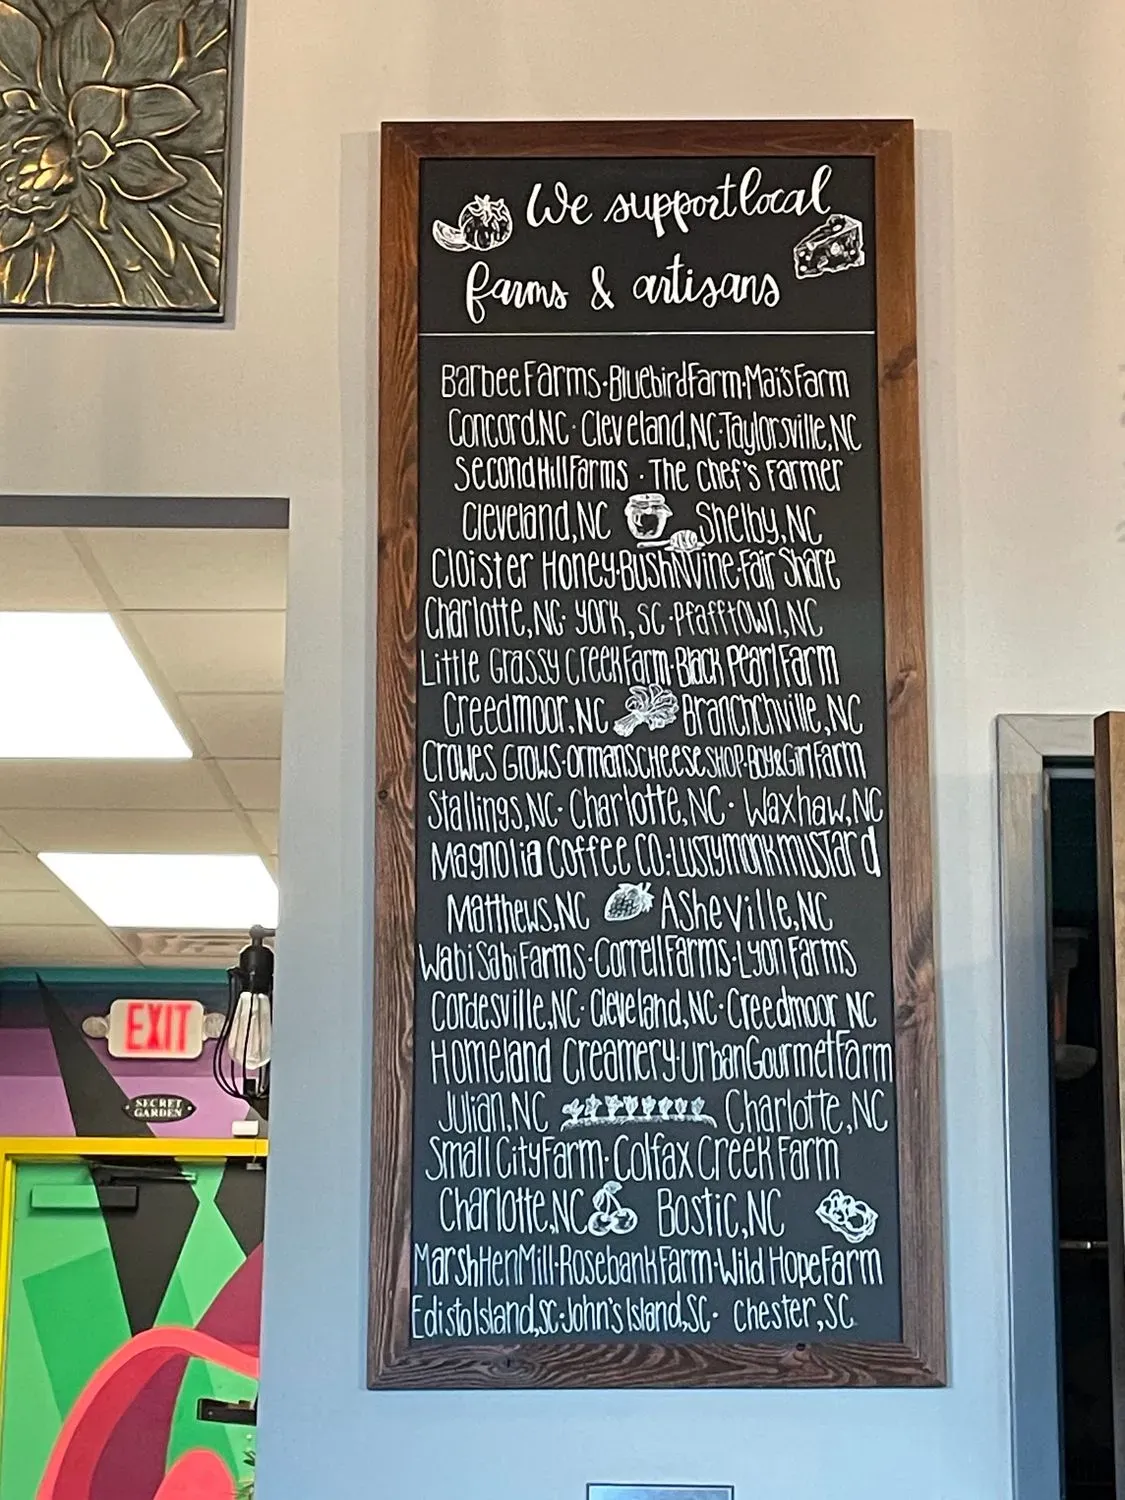 We support local
farms & artisans
Barbee Farms·Bluebird Farm·Mai's Farm
Concord,NC·Cleveland,NC·Taylorsville,NC
Second Hill Farms · The Chef's Farmer
Cleveland,NC Shelby,NC
Cloister Honey·BushNVine·Fair Share
Charlotte,NC·York, SC·Pfafftown,NC
Little Grassy Creek Farm·Black Pearl Farm
Creedmoor,NC Branchchville,NC
Crowes Grows·Ormans Cheese Shop·Boy&Girl Farm
Stallings,NC·Charlotte,NC·Waxhaw,NC
Magnolia Coffee Co.·Lustymonk mustard
Matthews,NC Asheville,NC
Wabi Sabi Farms·Correll Farms·Lyon Farms
Cordesville,NC·Cleveland,NC·Creedmoor NC
Homeland Creamery·Urban Gourmet Farm
Julian,NC Charlotte,NC
Small City Farm·Colfax Creek Farm
Charlotte,NC Bostic,NC
Marsh Hen Mill·Rosebank Farm·Wild Hope Farm
Edisto Island,SC·John's Island,SC· Chester,SC
EXIT
SECRET
GARDEN